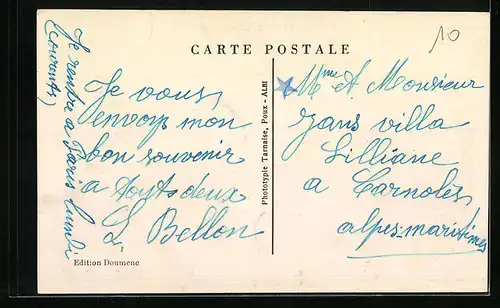 10
CARTE POSTALE
Je rentre a Paris lundi
(courants)
Je vous
envoys mon
bon souvenir
a touts deux
L. Bellon
Edition Doumenc
Phototypie Tarnaise, Poux - ALBI
Mme et Monsieur
Jans villa
Lilliane
a Carnolès
alpes-maritimes